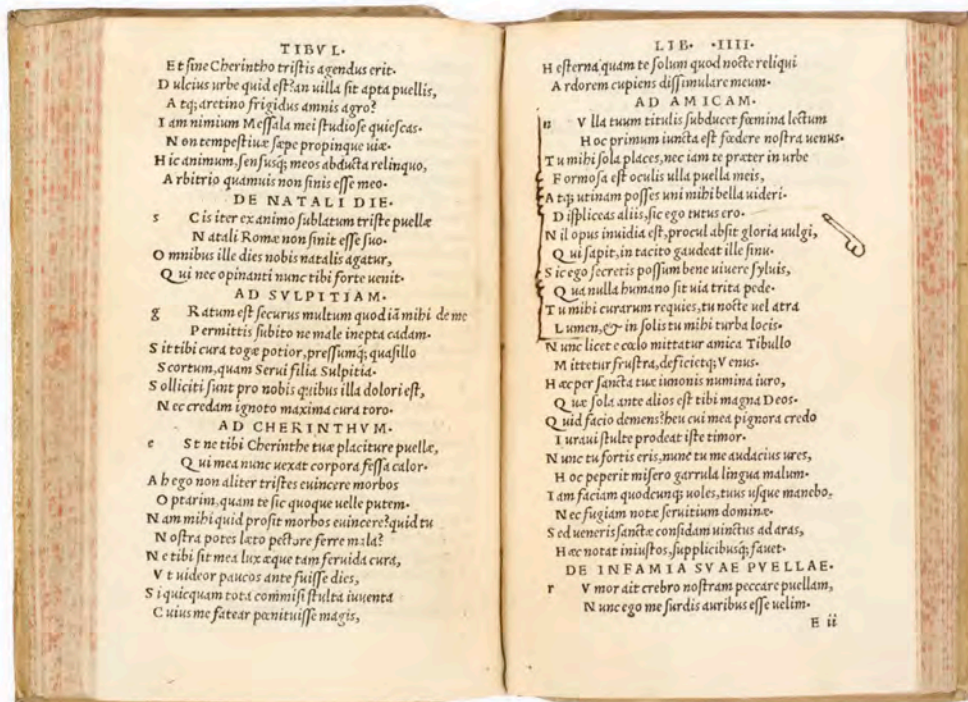 TIBVL·
Et sine Cherintho tristis agendus erit·
D ulcius urbe quid est? an uilla sit apta puellis,
A tq; aretino frigidus amnis agro?
I am nimium Messala mei studiose quiescas·
N on tempestiuæ sæpe propinque uiæ·
H ic animum, sensusq; meos abducta relinquo,
A rbitrio quamuis non finis esse meo·
DE NATALI DIE·
s C is iter ex animo sublatum triste puellæ
N atali Romæ non finit esse suo·
O mnibus ille dies nobis natalis agatur,
Q ui nec opinanti nunc tibi forte uenit·
AD SVLPITIAM·
g R atum est securus multum quod iã mihi de me
P ermittis subito ne male inepta cadam·
S it tibi cura togæ potior, pressumq; quasillo
S cortum, quam Serui filia Sulpitia·
S olliciti sunt pro nobis quibus illa dolori est,
N e credam ignoto maxima cura toro·
AD CHERINTHVM·
e S t ne tibi Cherinthe tuæ placiture puellæ,
Q ui mea nunc uexat corpora fessa calor·
A h ego non aliter tristes euincere morbos
O ptarim, quam te sic quoque uelle putem·
N am mihi quid prosit morbos euincere? quid tu
N ostra potes læto pectore ferre mala?
N e tibi sit mea lux æque tam feruida cura,
V t uideor paucos ante fuisse dies,
S i quicquam tota commisi stulta iuuenta
C uius me fatear pœnituisse magis,
LIB· ·IIII·
H esterna quam te solum quod nocte reliqui
A rdorem cupiens dissimulare meum·
AD AMICAM·
n V lla tuum titulis subducet fœmina lectum
H oc primum iuncta est fœdere nostra uenus·
T u mihi sola places, nec iam te præter in urbe
F ormosa est oculis ulla puella meis,
A tq; utinam posses uni mihi bella uideri·
D ispliceas aliis, sic ego tutus ero·
N il opus inuidia est, procul absit gloria uulgi,
Q ui sapit, in tacito gaudeat ille sinu·
S ic ego secretis possum bene uiuere syluis,
Q ua nulla humano sit uia trita pede·
T u mihi curarum requies, tu nocte uel atra
L umen, & in solis tu mihi turba locis·
N unc licet e cœlo mittatur amica Tibullo
M ittetur frustra, deficietq; Venus·
H æc per sancta tuæ iunonis numina iuro,
Q uæ sola ante alios est tibi magna Deos·
Q uid facio demens? heu cui mea pignora credo
I uraui stulte prodeat iste timor·
N unc tu fortis eris, nunc tu me audacius ures,
H oc peperit misero garrula lingua malum·
I am faciam quodcunq; uoles, tuus usque manebo,
N ec fugiam notæ seruitium dominæ·
S ed ueneris sanctæ considam uinctus ad aras,
H æc notat iniustos, supplicibusq; fauet·
DE INFAMIA SVAE PVELLAE·
r V mor ait crebro nostram peccare puellam,
N unc ego me surdis auribus esse uelim·
E ii